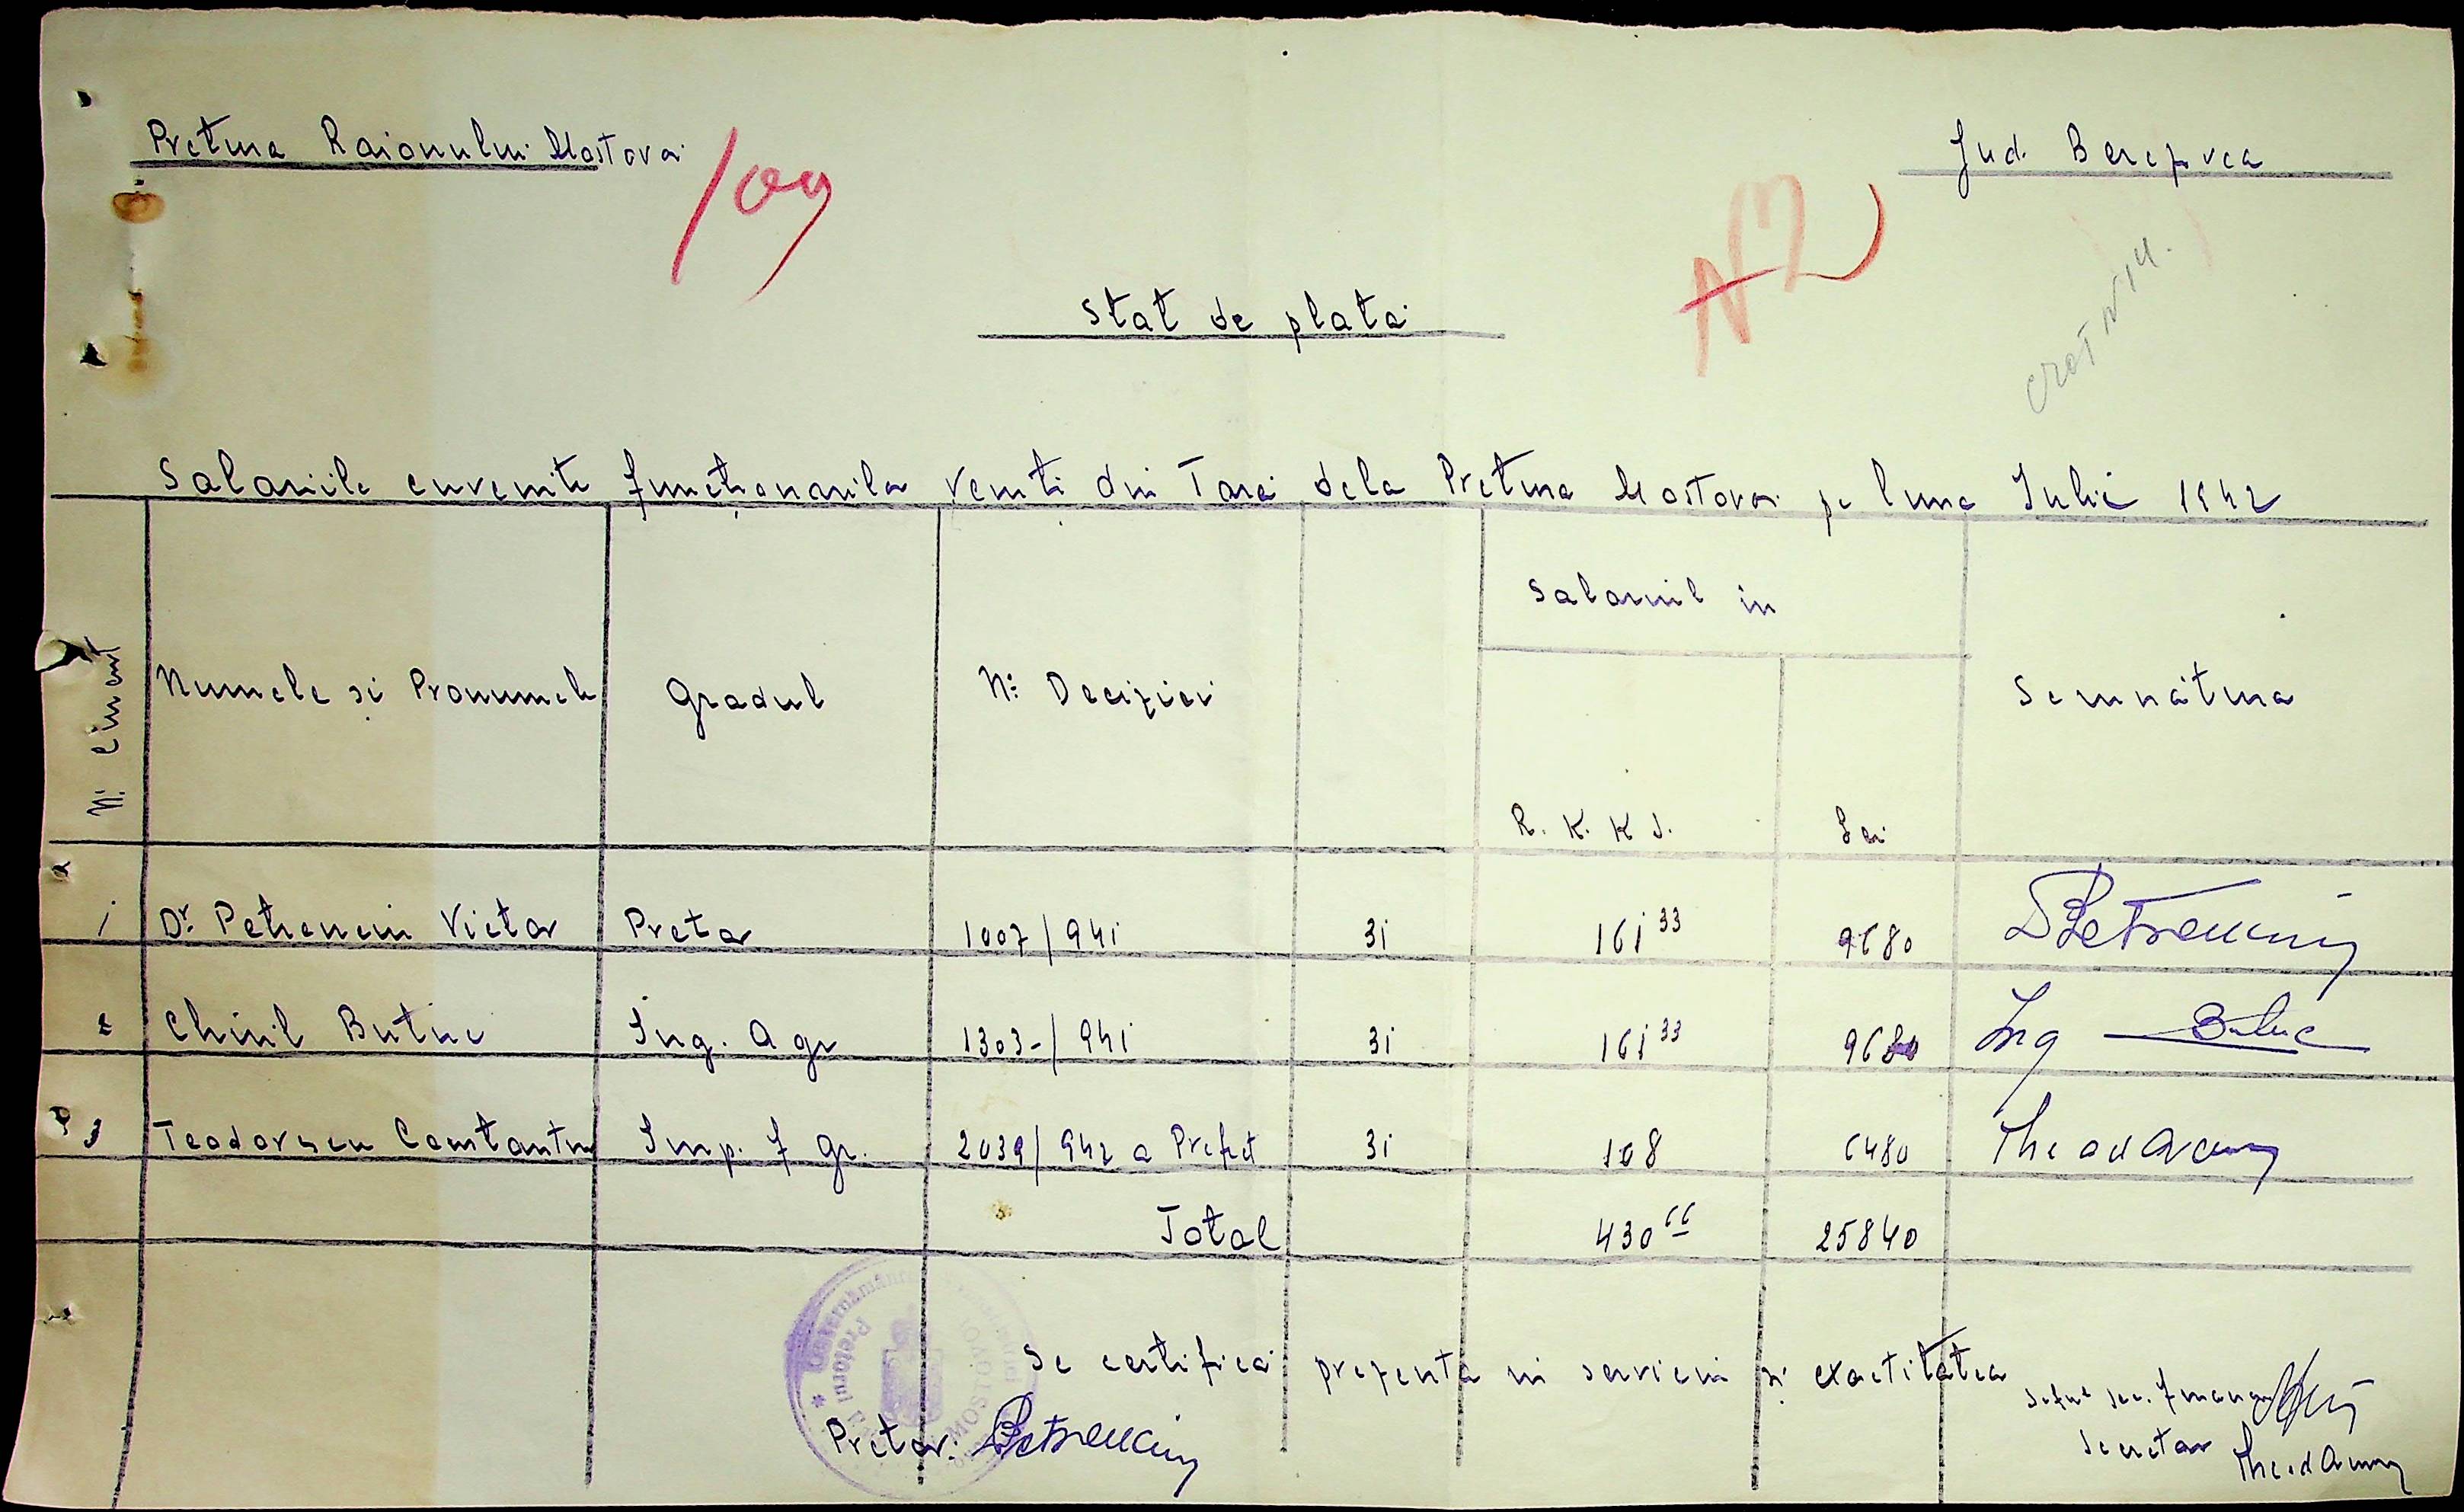 Pretura Raionului Mostovoi
Jud. Berezovca
109
N 2
Стот N 14.
Stat de plată
Salariile cuvenite funcționarilor veniți din Țară dela Pretura Mostovoi pe luna Iulie 1942
Nr. curent
Numele și Pronumele
Gradul
Nr. Deciziei
Salariul in
R. K. K. S.
Lei
Semnătura
1 Dr. Petrenciu Victor Pretor 1007/941 31 161 33 9680 DPetrenciu
2 Chiril Butuc Ing. Agr 1303-/941 31 161 33 9680 Ing Butuc
3 Teodorescu Constantin Imp. f gr. 2039/942 a Prefect 31 108 6480
Total 430 66 25840
Se certifică prezența în serviciu și exactitatea
Pretor: Petrenciu
Secretar
Pretorul